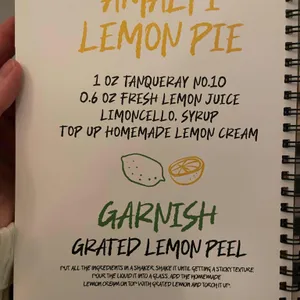 AMALFI
LEMON PIE
1 OZ TANQUERAY NO.10
0.6 OZ FRESH LEMON JUICE
LIMONCELLO. SYRUP
TOP UP HOMEMADE LEMON CREAM
GARNISH
GRATED LEMON PEEL
PUT ALL THE INGREDIENTS IN A SHAKER. SHAKE IT UNTIL GETTING A STICKY TEXTURE
POUR THE LIQUID IT INTO A GLASS. ADD THE HOMEMADE
LEMON CREAM ON TOP WITH GRATED LEMON AND TORCH IT UP.